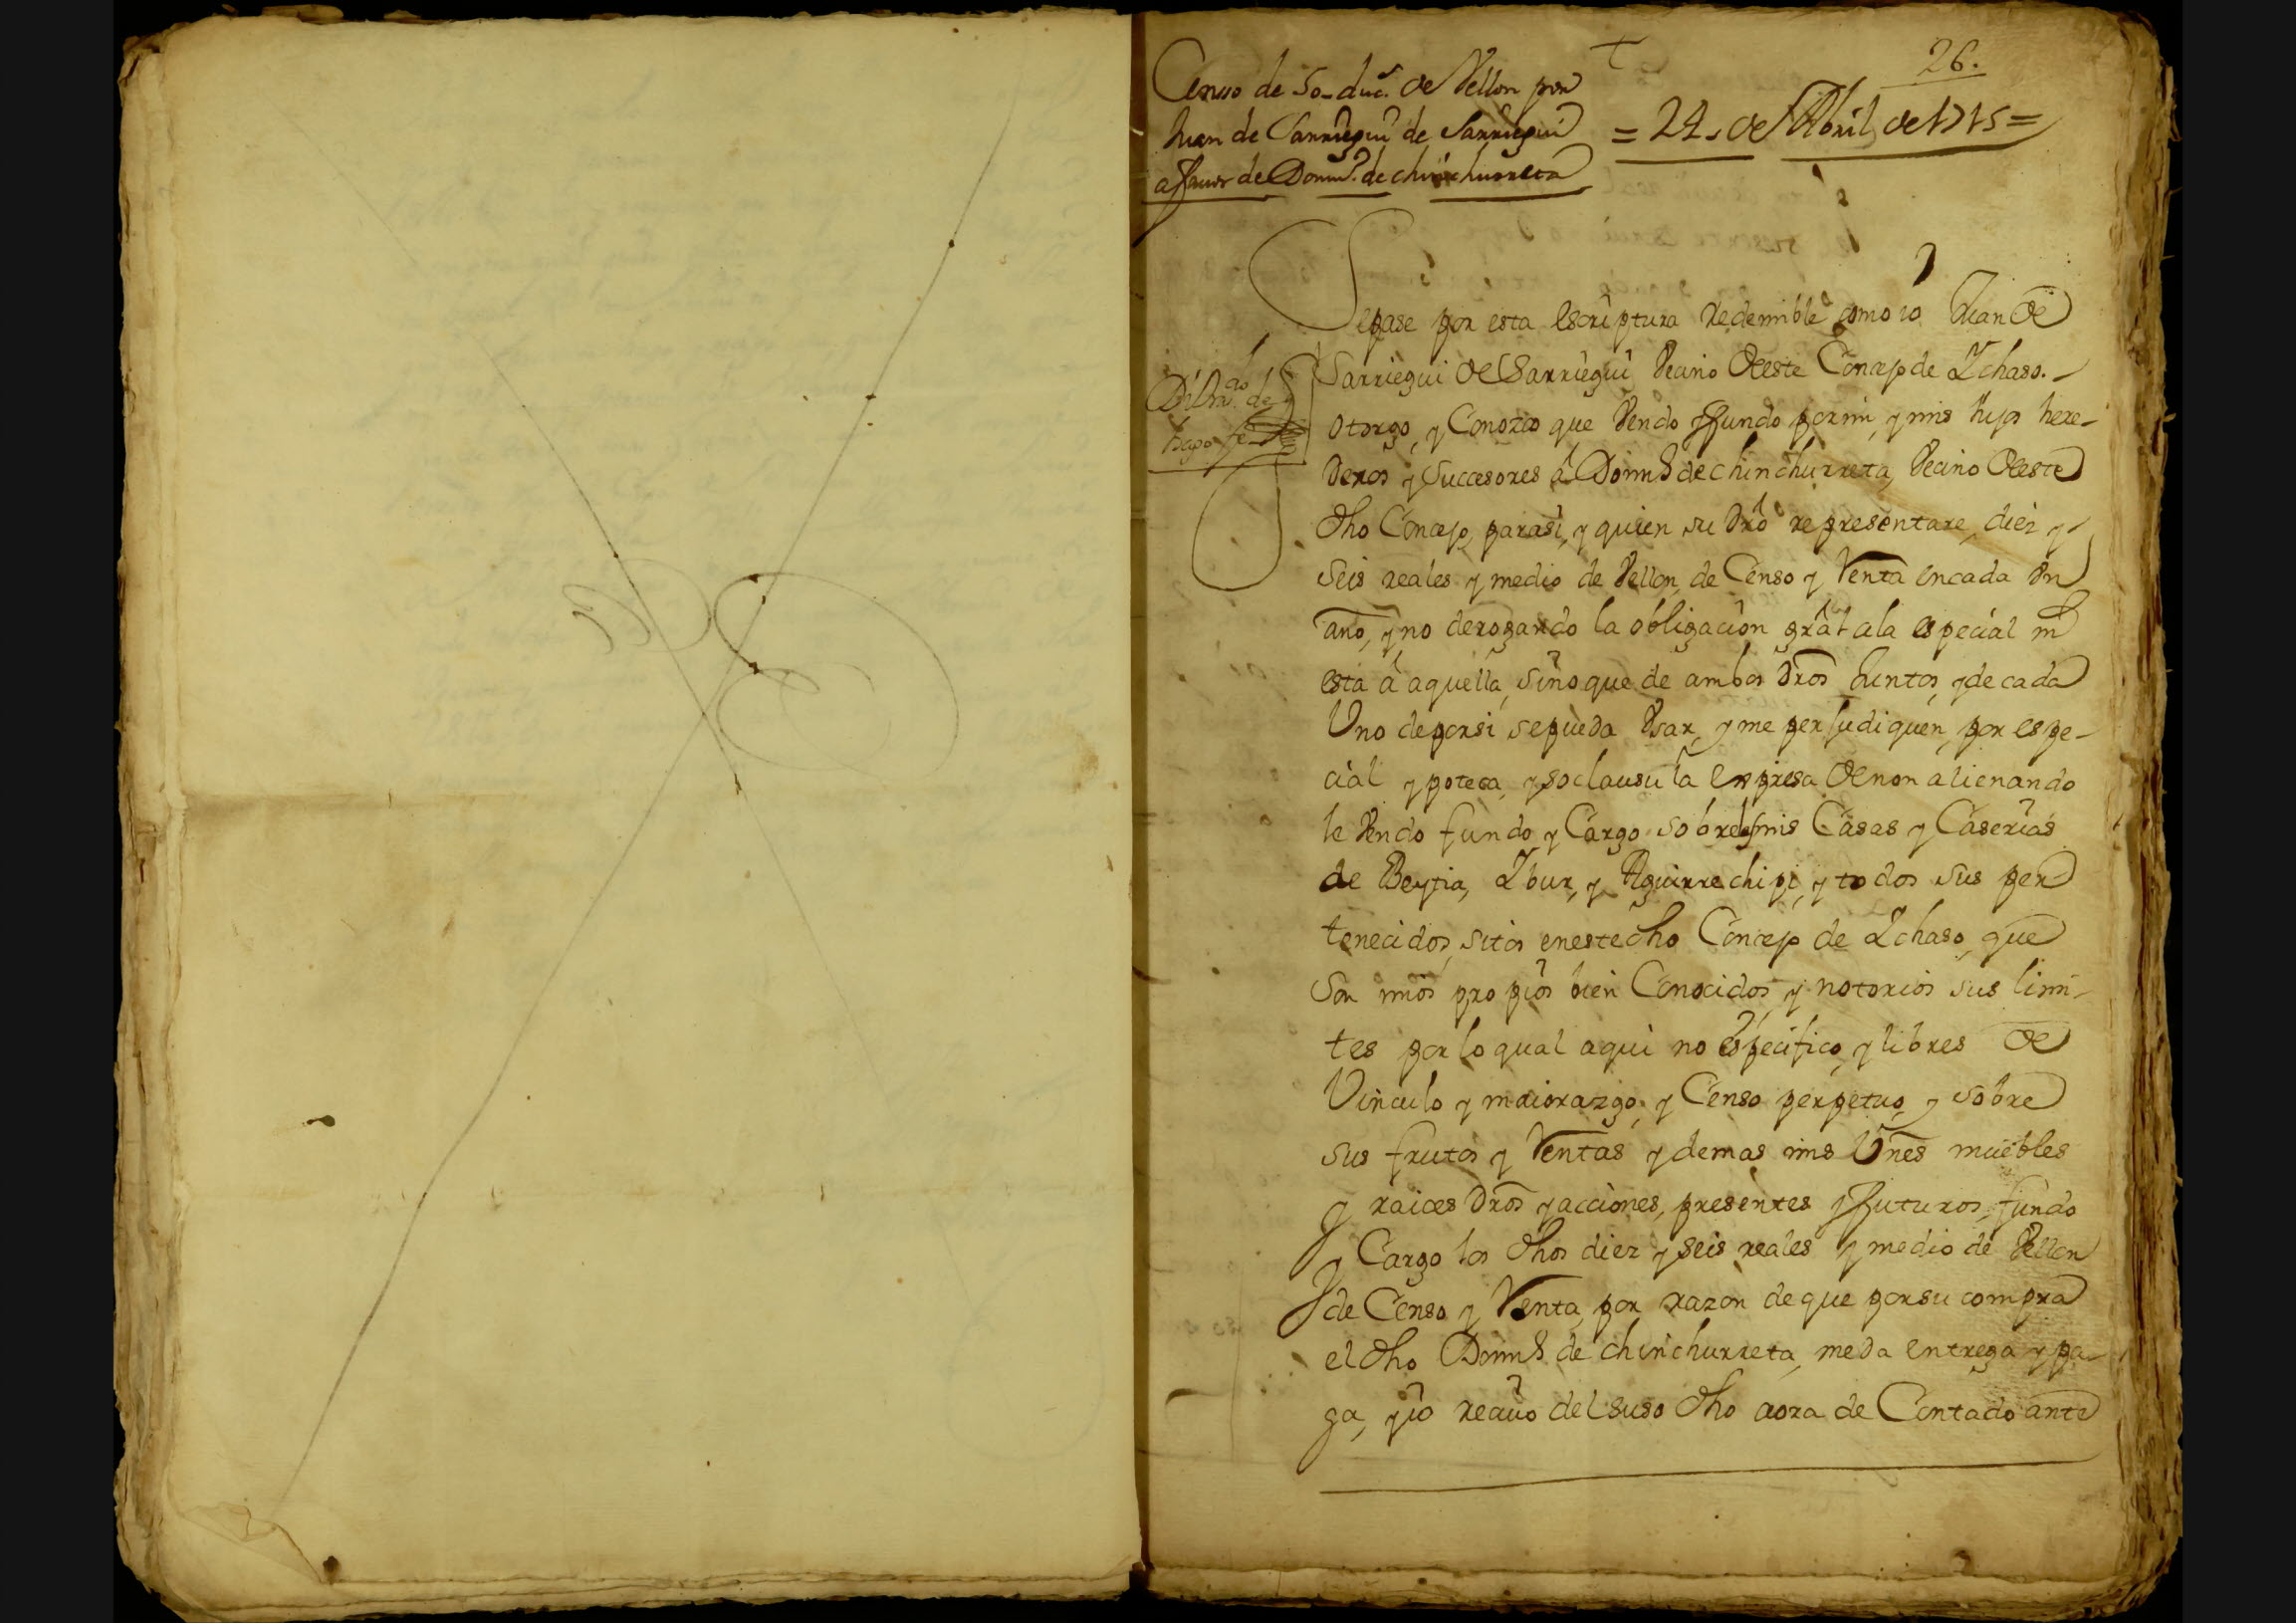 26.
Censo de 50 duc.s de Vellon por
Juan de Sarriegui de Sarriegui
a fauor de Domin.o de chinchurreta
= 24 de Abril de 1715 =
Sepase por esta escriptura redemible como io Juan de
Sarriegui de Sarriegui Vecino deeste Concejo de Ychaso.
otorgo, y Conozco que Vendo y fundo por mi, y mis hijos here-
deros y Succesores â Domin.o de chinchurreta, Vecino deeste
dho Concejo, parasi, y quien su dro representare, diez y
seis reales y medio de Vellon, de Censo y Renta encada Vn
año, y no derogando la obligacion gral ala especial ni
esta â aquella, sino que de ambos dros Juntos, y de cada
Uno deporsi sepueda Vsar, y me perjudiquen, por espe-
cial ypoteca, y so clausula expresa de non alienando
le Vendo fundo y Cargo sobre las mis Casas y Caserias
de Beytia, Ybur, y Aguirrechipi, y todos sus per
tenecidos, sitos enestedho Concejo de Ychaso, que
son mios propios bien Conocidos, y notorios sus limi-
tes por lo qual aqui no especifico, y libres de
Vinculo y maiorazgo, y Censo perpetuo, y sobre
sus frutos y Rentas y demas mis Vnes muebles
y raices dros y acciones, presentes y futuros, fundo
y Cargo los dhos diez y seis reales y medio de Vellon
de Censo y Renta, por razon de que por su compra
el dho Domin.o de chinchurreta, me da entrega y pa-
ga, y io reciuo del suso dho aora de Contado ante